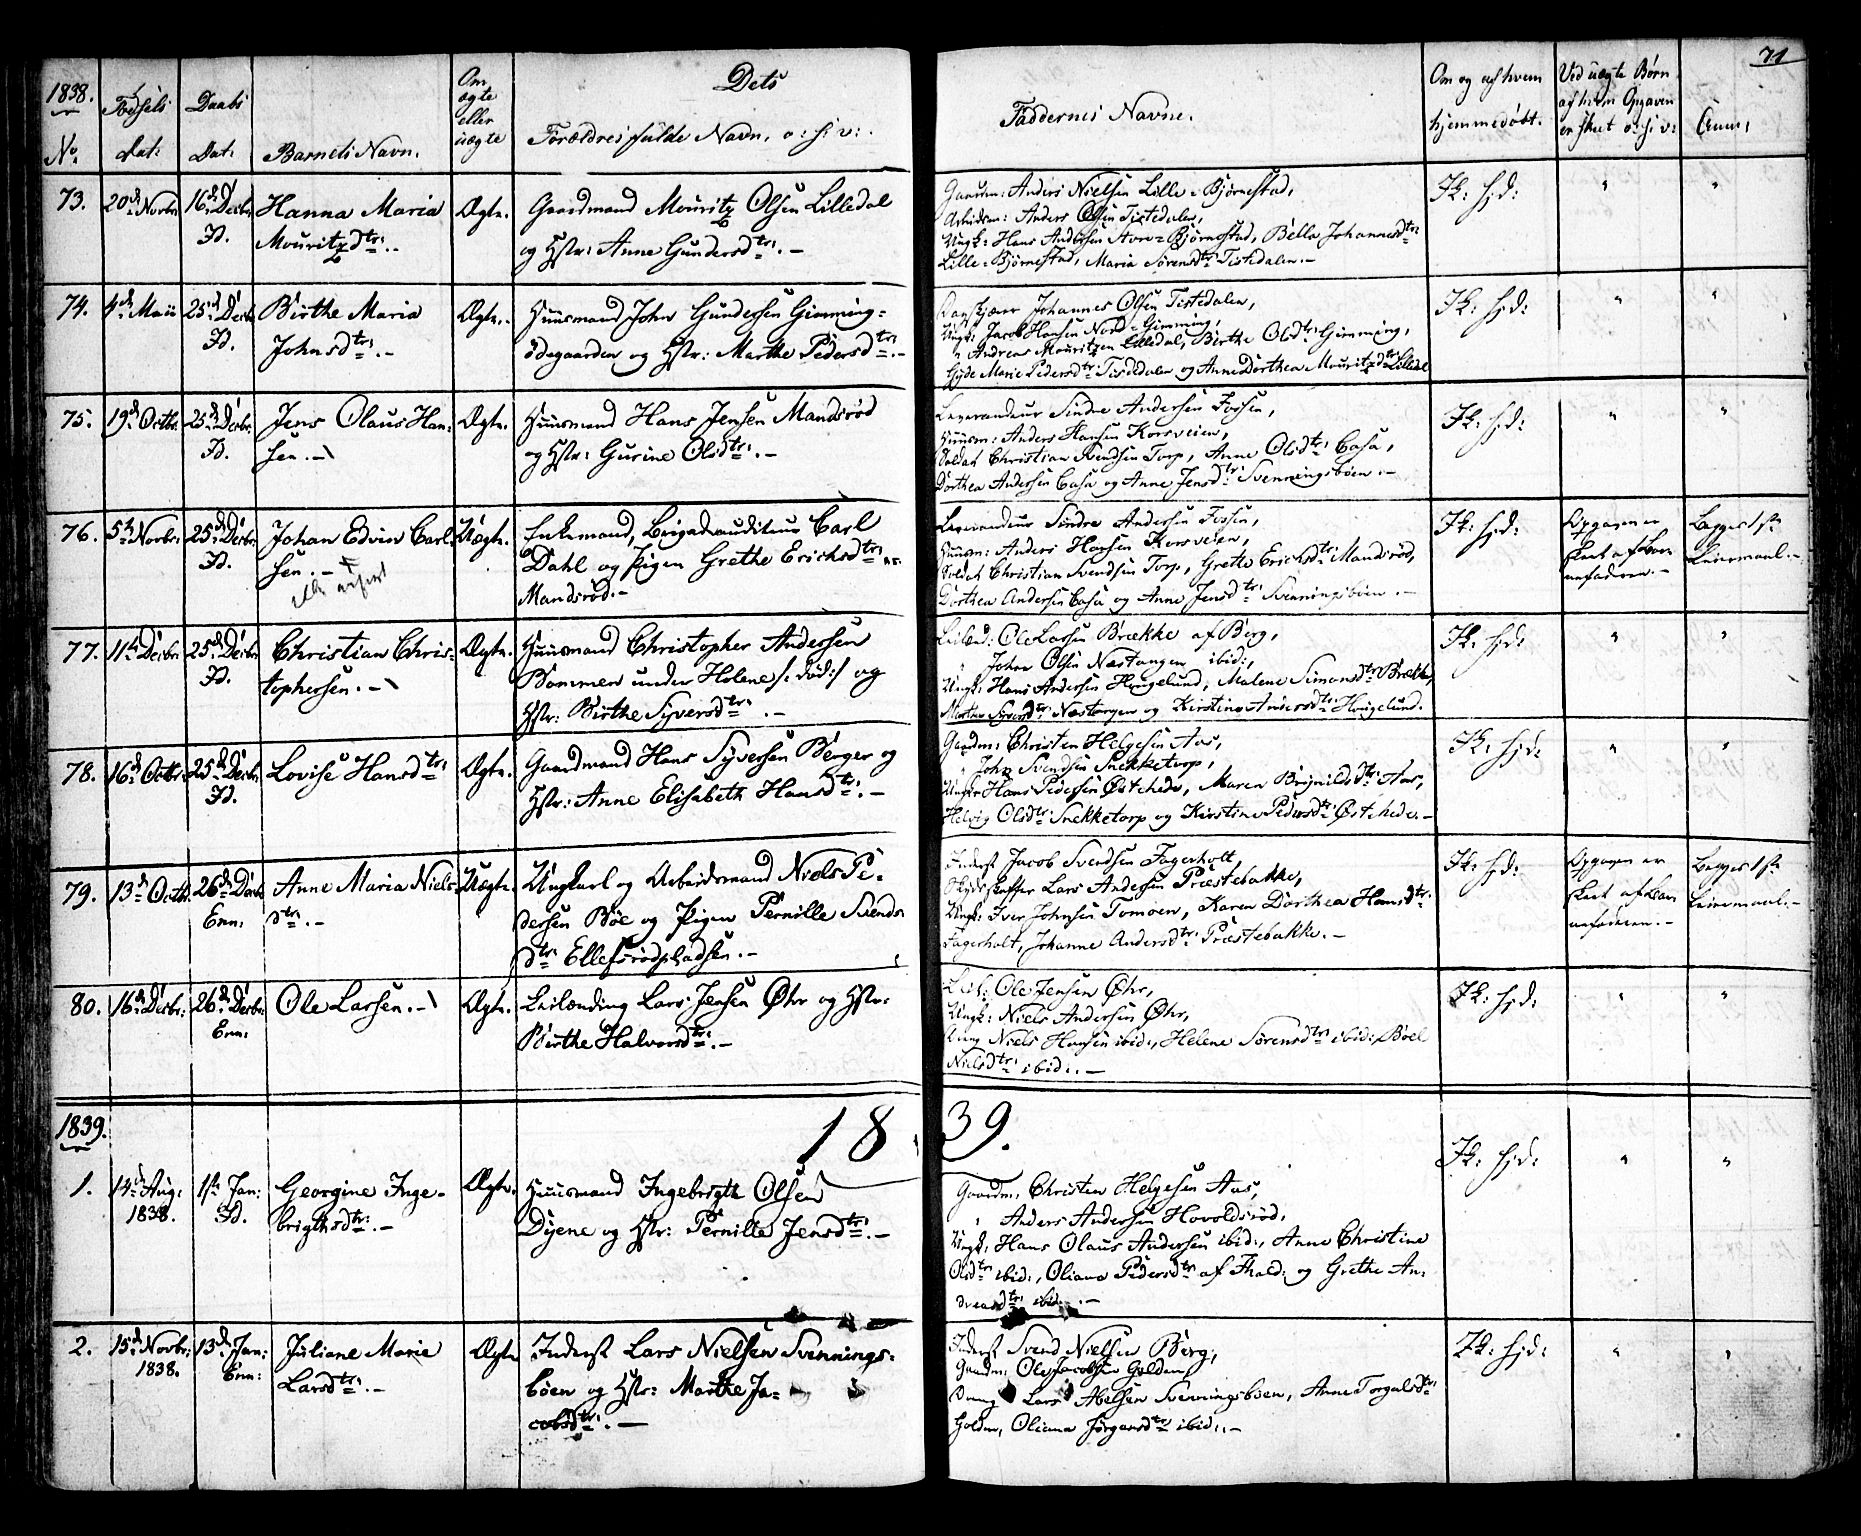 71
1838.
No.
Fødsels
Dat:
Daabs
Dat:
Barnets Navn.
Om
ægte
eller
uægte
Dets
Forældres fulde Navn, o: s: v:.
Faddernes Navne.
Om og af hvem
hjemmedøbt.
Ved uægte Børn
af hvem Opgaven
er skeet o: s: v:
Anm:
73. 20de Novbr: 16de Decbr: Hanna Maria Ægte. Gaardmand Mouritz Olsen Lilledal
Id. Mouritzdtr:.- og Hstr: Anne Gundersdtr:.-
Gaardm: Anders Nielsen Lille-Bjørnestad,
Arbeidsm: Anders Olsen Tistedalen,
Ungk: Hans Andersen Store-Bjørnestad, Bella Johannesdtr:
Lille-Bjørnestad, Maria Sørensdtr: Tistedalen.-
Ik: hj: d: " "
74. 4de Maii 25de Decbr: Birthe Maria Ægte. Huusmand John Gundersen Gimming-
Id. Johnsdtr:.- ødegaarden og Hstr: Marthe Pedersdtr:.-
Johannes Olsen Tistedalen,
Ungk: Jacob Hansen Nord-Gimming,
" Andreas Mouritzen Lilledal, Birthe Olsdtr: Gimming,
Gyde Marie Pedersdtr: Tistedalen og Anne Dorthea Mouritzdtr: Lilledal
Ik: hj: d: " "
75. 19de Octbr: 25de Decbr: Jens Olaus Han- Ægte. Huusmand Hans Jensen Mandsrød
Id. sen.- og Hstr: Gurine Olsdtr:.-
Leverandeur Sindre Andersen Fossen,
Huusm: Anders Hansen Korsveien,
Soldat Christian Svendsen Torp, Anne Olsdtr: Casa,
Dorthea Andersen Casa og Anne Jensdtr: Svenningsbøen.-
Ik: hj: d: " "
76. 5te Novbr: 25de Decbr: Johan Edvin Carl- Uægte. Enkemand, Brigadeauditeur Carl
Id. sen.- Dahl og Pigen Grethe Ericksdtr:
Mandsrød.-
Leverandeur Sindre Andersen Fossen,
Huusm: Anders Hansen Korsveien,
Soldat Christian Svendsen Torp, Grethe Erichsdtr: Mandsrød,
Dorthea Andersen Casa og Anne Jensdtr: Svenningsbøen.-
Ik: hj: d: Opgaven er
skeet af Bar-
nefaderen.-
Begges 1ste
Leiermaal.-
77. 11te Decbr: 25de Decbr: Christian Chris- Ægte. Huusmand Christopher Andersen
Id. tophersen.- Bommen under Holene /: død:/ og
Hstr: Birthe Syversdtr:.-
Leilænd: Ole Larsen Brække af Berg,
" John Olsen Næstangen ibid:,
Ungk: Hans Andersen Hougelund, Malene Simonsdtr: Brække,
Marthe Syversdtr: Næstangen og Kirstine Andersdtr: Hougelund.
Ik: hj: d: " "
78. 16de Octbr: 25de Decbr: Lovise Hansdtr: Ægte. Gaardmand Hans Syversen Berger og
Id. Hstr: Anne Elisabeth Hansdtr:.-
Gaardm: Christen Helgesen Aas,
" John Svendsen Snekketorp,
Ungk: Hans Pedersen Østehede, Maren Brynildsdtr: Aas,
Helvig Olsdtr: Snekketorp og Kirstine Pedersdtr: Østehede.-
Ik: hj: d: " "
79. 13de Octbr: 26de Decbr: Anne Maria Niels- Uægte. Ungkarl og Arbeidsmand Niels Pe-
Enn: dtr:.- dersen Bøe og Pigen Pernille Svends-
dtr: Ellefsrødpladsen.-
Inderst Jacob Svendsen Fagerholt,
Skydsskaffer Lars Andersen Præstebakke,
Ungk: Iver Johnsen Tomoen, Karen Dorthea Hansdtr:
Fagerholt, Johanne Andersdtr: Præstebakke.-
Ik: hj: d: Opgaven er
skeet af Bar-
nefaderen.-
Begges 1ste
Leiermaal.-
80. 16de Decbr: 26de Decbr: Ole Larsen.- Ægte. Leilænding Lars Jensen Øhr og Hstr:
Enn: Birthe Halvorsdtr:.-
Leil: Ole Jensen Øhr,
Ungk: Niels Andersen Øhr,
Dreng Niels Hansen ibid:, Helene Sørensdtr: ibid:, Boel
Nielsdtr: ibid:.-
Ik: hj: d: " "
1839. 1839.
1. 14de Aug: 1ste Jan: Georgine Inge- Ægte. Huusmand Ingebrigth Olsen
1838. Id. brigthsdtr:.- Dyene og Hstr: Pernille Jensdtr:.-
Gaardm: Christen Helgesen Aas,
" Anders Andersen Hovoldsrød,
Ungk: Hans Olaus Andersen ibid:, Anne Christine
Olsdtr: ibid:, Oliana Pedersdtr: af Fhald: og Grethe An-
dreasdtr: ibid:.-
Ik: hj: d: " "
2. 15de Novbr: 13de Jan: Juliane Marie Ægte Inderst Lars Nielsen Svennings-
1838. Enn: Larsdtr:.- bøen og Hstr: Marthe Ja-
cobsdtr:.-
Inderst Svend Nielsen Berg,
Gaardm: Ole Jacobsen Golden,
Dreng Lars Abelsen Svenningsbøen, Anne Torgalsdtr:
Golden, Oliana Jørgensdtr: ibid:.-
Ik: hj: d: " "